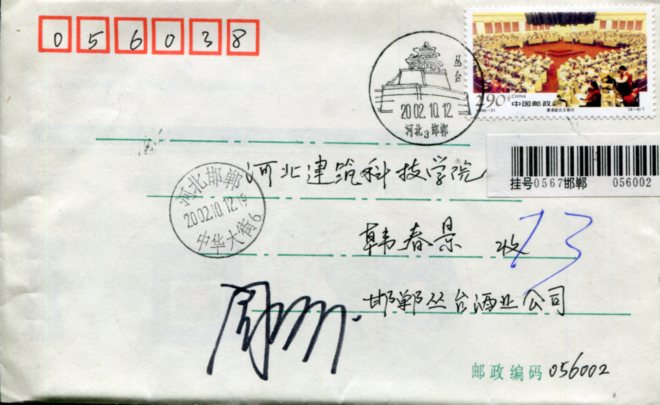 056038
丛台
2002.10.12
河北3邯郸
290分
CHINA
中国邮政
挂号0567邯郸 056002
河北邯郸
2002.10.12
中华大街6
河北建筑科技学院
韩春景 收
13
邯郸丛台酒业公司
邮政编码 056002